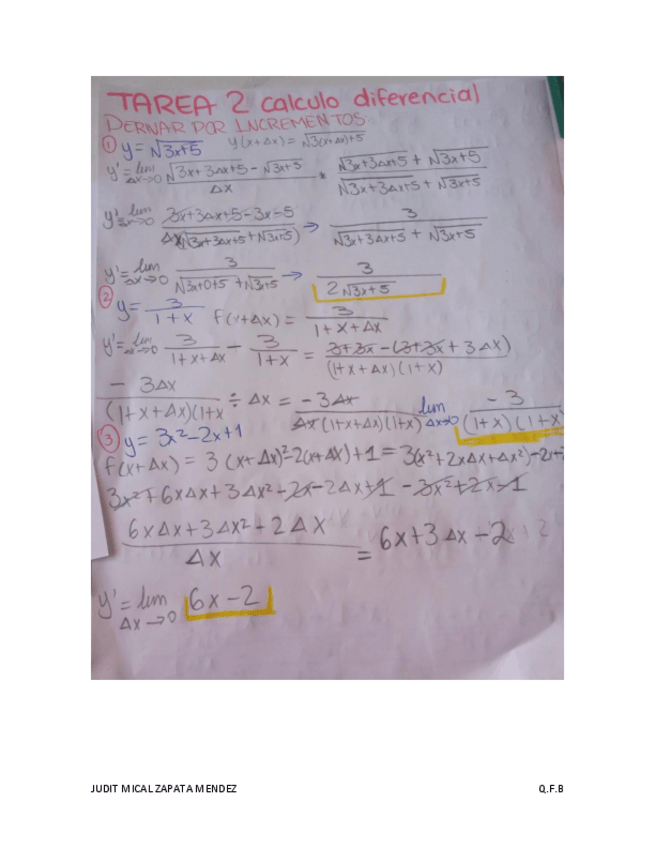 TAREA 2 calculo diferencial
DERIVAR POR INCREMENTOS
① y = √3x+5 y(x+Δx) = √3(x+Δx)+5
y' = lim Δx→0 (√3x+3Δx+5 - √3x+5) / Δx * (√3x+3Δx+5 + √3x+5) / (√3x+3Δx+5 + √3x+5)
y' = lim Δx→0 (3x+3Δx+5-3x-5) / (Δx(√3x+3Δx+5 + √3x+5)) → 3 / (√3x+3Δx+5 + √3x+5)
y' = lim Δx→0 3 / (√3x+0+5 + √3x+5) → 3 / (2√3x+5)
② y = 3 / (1+x) f(x+Δx) = 3 / (1+x+Δx)
y' = lim Δx→0 3 / (1+x+Δx) - 3 / (1+x) = (3+3x-(3+3x+3Δx)) / ((1+x+Δx)(1+x))
-3Δx / ((1+x+Δx)(1+x) ÷ Δx = -3Δx / (Δx(1+x+Δx)(1+x)) lim Δx→0 -3 / ((1+x)(1+x
③ y = 3x²-2x+1
f(x+Δx) = 3(x+Δx)²-2(x+Δx)+1 = 3(x²+2xΔx+Δx²)
3x²+6xΔx+3Δx²-2x-2Δx+1 -3x²+2x-1
(6xΔx+3Δx²-2Δx) / Δx = 6x+3Δx-2
y' = lim Δx→0 6x-2
JUDIT MICAL ZAPATA MENDEZ Q.F.B